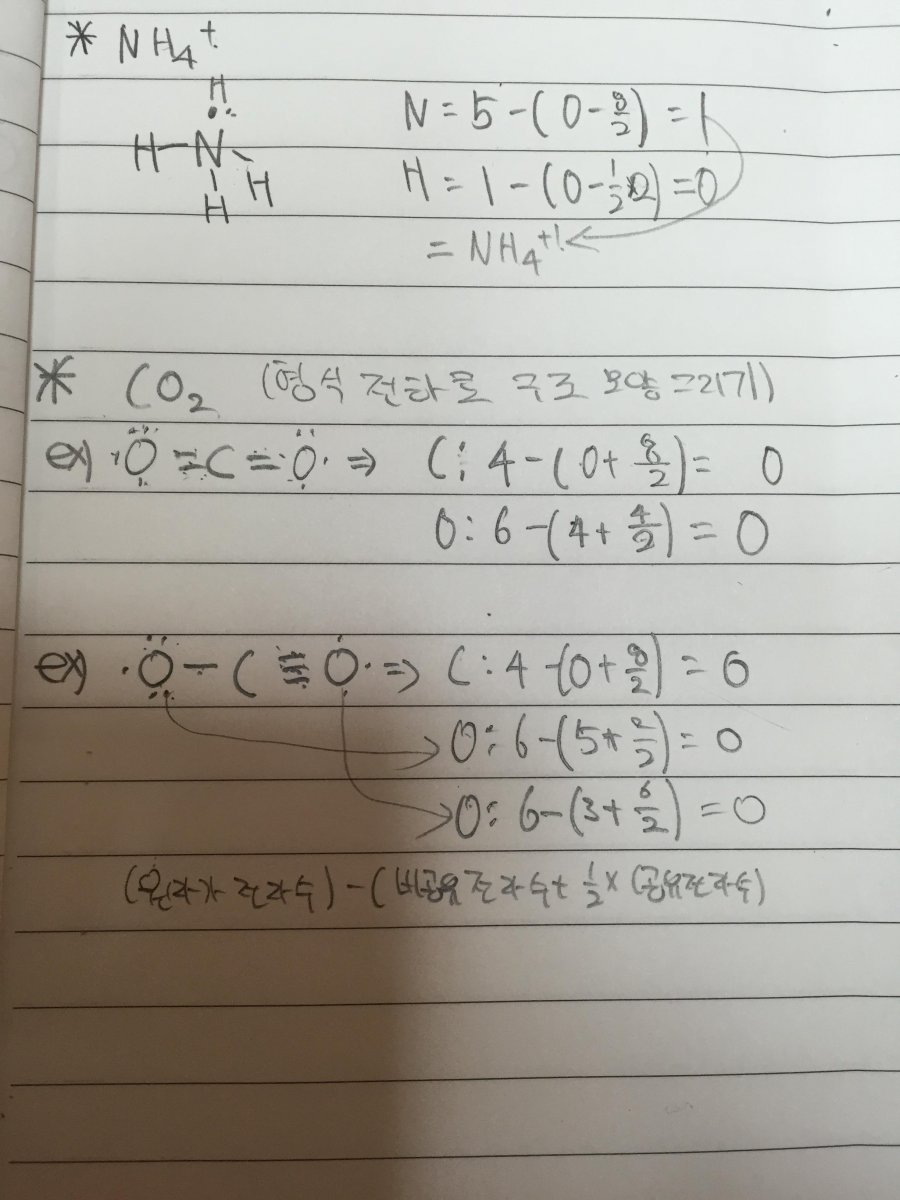 * NH₄⁺
H
H-N
H
H
N = 5 -( 0 - 8/2 ) = 1
H = 1 - (0 - 1/2 x2) = 0
= NH₄⁺¹
* CO₂ (형식 전하로 구조 모양 그리기)
ex) O = C = O ⇒ C : 4 - ( 0 + 8/2 ) = 0
O : 6 - ( 4 + 4/2 ) = 0
ex) O - C ≡ O ⇒ C : 4 - (0 + 8/2) = 0
O : 6 - (5 + 2/2) = 0
O : 6 - (3 + 6/2) = 0
(원자가 전자수) - (비공유 전자수 + 1/2 × (공유전자수)